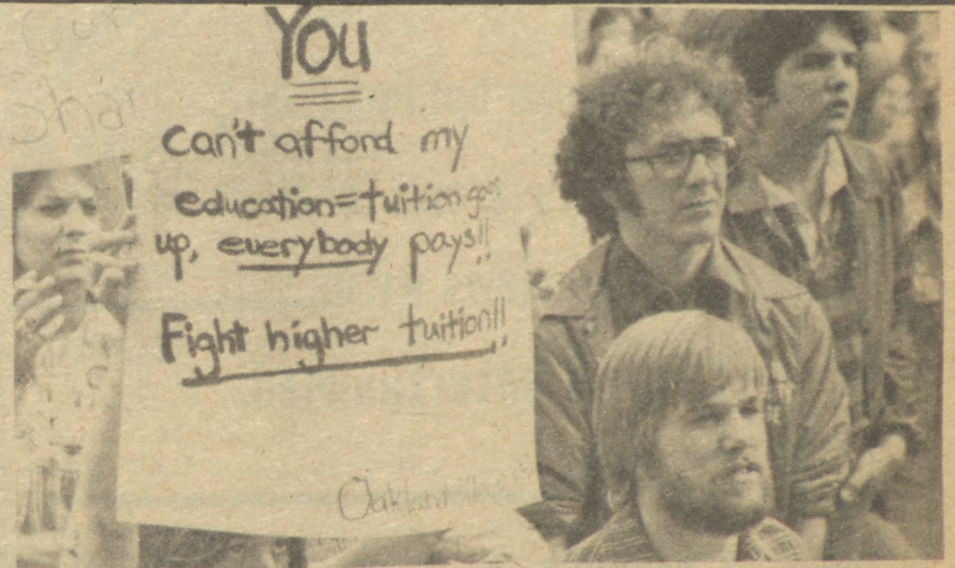 Our
YOU
can't afford my
education=tuition goes
up, everybody pays!!
Fight higher tuition!!
Oakland